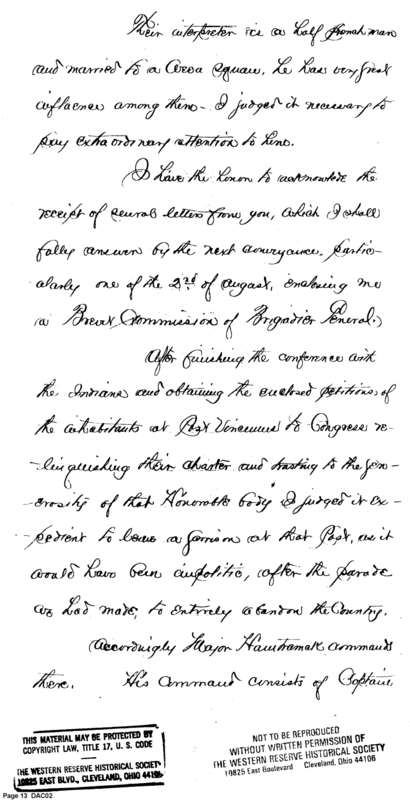 Their interpreter is a half french man
and married to a Weea squaw, he has very great
influence among them - I judged it necessary to
pay extraordinary attention to him.
I have the honor to acknowledge the
receipt of several letters from you, which I shall
fully answer by the next conveyance, partic-
-ularly one of the 2nd of august, enclosing me
a Brevet Commission of Brigadier General.
After finishing the conference with
the Indians and obtaining the enclosed petitions of
the inhabitants at Post Vincennes to Congress re-
-linquishing their charter and trusting to the gen-
-erosity of that Honorable body I judged it ex-
-pedient to leave a garrison at that Post, as it
would have been impolitic, after the parade
we had made, to entirely abandon the Country.
Accordingly Major Hamtramck commands
there. His command consists of Captain
THIS MATERIAL MAY BE PROTECTED BY
COPYRIGHT LAW, TITLE 17, U. S. CODE
THE WESTERN RESERVE HISTORICAL SOCIETY
10825 EAST BLVD., CLEVELAND, OHIO 44106
NOT TO BE REPRODUCED
WITHOUT WRITTEN PERMISSION OF
THE WESTERN RESERVE HISTORICAL SOCIETY
10825 East Boulevard Cleveland, Ohio 44106
Page 13 DAC02